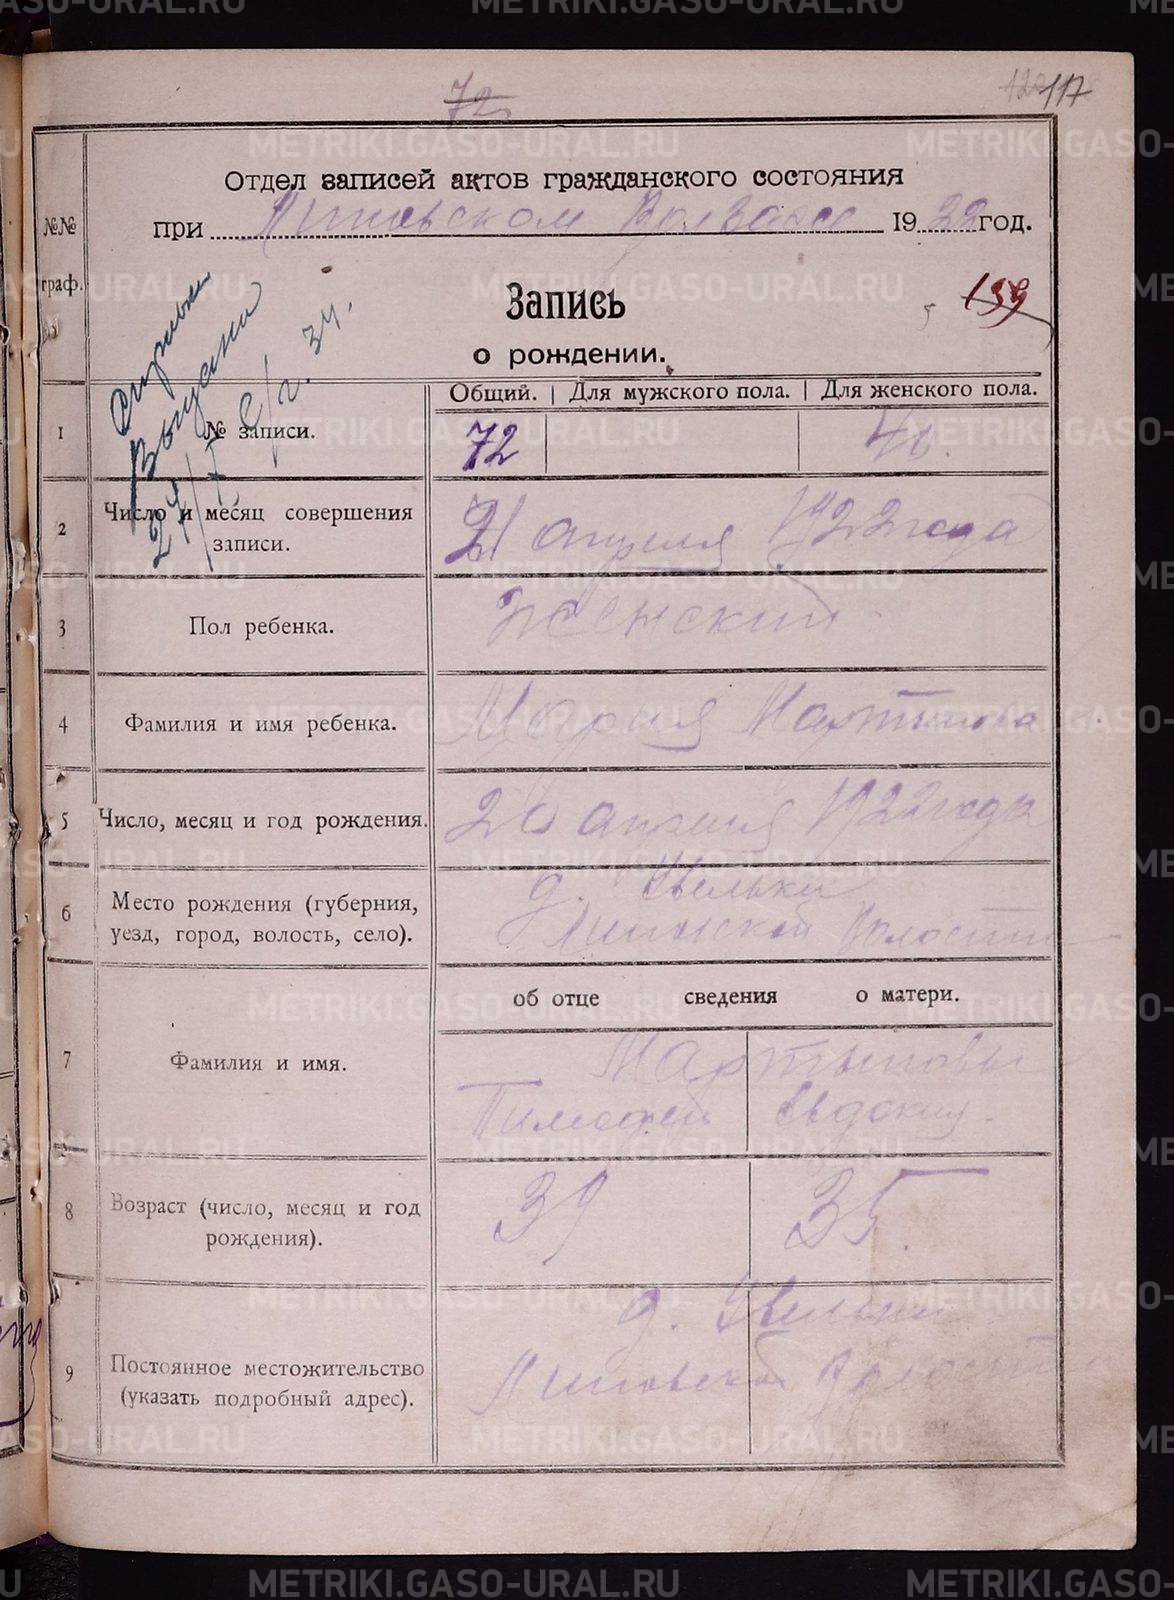 72
117
Отдел записей актов гражданского состояния
при Липовском Волзагсе 1922 год.
№№
граф.
Запись
о рождении.
159
Справка
Выдана
27/X е/г. 34.
Общий. | Для мужского пола. | Для женского пола.
1 № записи. 72 46.
2 Число и месяц совершения записи. 21 апреля 1922 года
3 Пол ребенка. Женский
4 Фамилия и имя ребенка. Мария Мартынова.
5 Число, месяц и год рождения. 20 апреля 1922 года
6 Место рождения (губерния, д.
уезд, город, волость, село). Липовской Волости
об отце сведения о матери.
Мартыновы
7 Фамилия и имя.
Тимофей Евдокия.
8 Возраст (число, месяц и год рождения). 39 35.
д.
9 Постоянное местожительство
(указать подробный адрес). Липовской Волости
METRIKI.GASO-URAL.RU